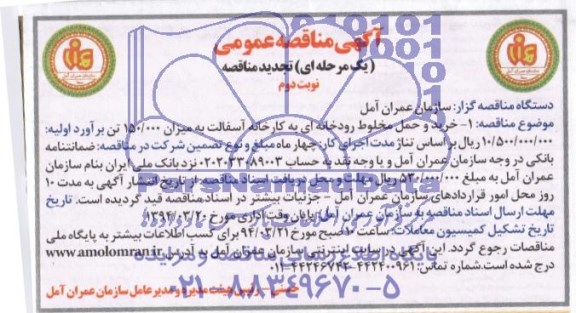 آگهی مناقصه عمومی
(یک مرحله ای) تجدید مناقصه
نوبت دوم
دستگاه مناقصه گزار: سازمان عمران آمل
موضوع مناقصه: ۱- خرید و حمل مخلوط رودخانه ای به کارخانه آسفالت به میزان ۱۵۰/۰۰۰ تن برآورد اولیه:
۱۰/۵۰۰/۰۰۰/۰۰۰ ریال بر اساس تناژ مدت اجرای کار: چهار ماه مبلغ و نوع تضمین شرکت در مناقصه: ضمانتنامه
بانکی در وجه سازمان عمران آمل و یا وجه نقد به حساب نزد بانک ملی ایران بنام سازمان
عمران آمل به مبلغ ۵۳۰/۰۰۰/۰۰۰ ریال مهلت و محل دریافت اسناد مناقصه: از تاریخ انتشار آگهی به مدت ۱۰
روز محل امور قراردادهای سازمان عمران آمل - جزئیات بیشتر در اسناد مناقصه قید گردیده است. تاریخ
مهلت ارسال اسناد مناقصه به سازمان عمران آمل: پایان وقت اداری مورخ ۱۳۹۴/۰۳/۲۰
تاریخ تشکیل کمیسیون معاملات: ساعت ۱۰ صبح مورخ ۹۴/۰۳/۲۱ برای کسب اطلاعات بیشتر به پایگاه ملی
مناقصات رجوع گردد. این آگهی در سایت اینترنتی سازمان عمران آمل به آدرس www.amolomran.ir
درج شده است. شماره تماس: ۴۴۲۴۰۰۹۶۱-۰۱۱
رئیس هیئت مدیره و مدیر عامل سازمان عمران آمل
ParsNamadData
پایگاه اطلاع رسانی مناقصه و مزایده
۰۲۱-۸۸۳۴۹۶۷۰-۵